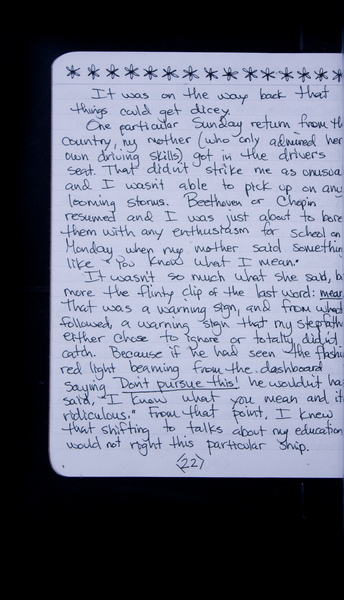 It was on the way back that
things could get dicey.
One particular Sunday return from th
country, my mother (who only admired her
own driving skills) got in the drivers
seat. That didn't strike me as unusua
and I wasn't able to pick up on any
looming storms. Beethoven or Chopin
resumed and I was just about to bore
them with any enthusiasm for school on
Monday when my mother said somethin
like "You know what I mean."
It wasn't so much what she said, b
more the flinty clip of the last word: mean
That was a warning sign, and from what
followed, a warning sign that my stepfath
either chose to ignore or totally didn't
catch. Because if he had seen the flashi
red light beaming from the dashboard
saying "Don't pursue this!" he wouldn't ha
said, "I know what you mean and it
ridiculous." From that point, I knew
that shifting to talks about my education
would not right this particular ship.
<22>